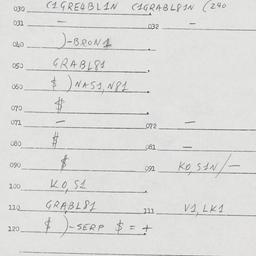 030 C1GRE4BL1N C1GRABL81N (240
031 — 032 —
040 )-BRON1
050 GRABL81
060 $ )NAS1, N81
070 $
071 — 072 —
080 $ 081 —
090 $ 091 K0, S1N/—
100 K0, S1
110 GRABL81 111 V1, LK1
120 $ )-SERP $ = +